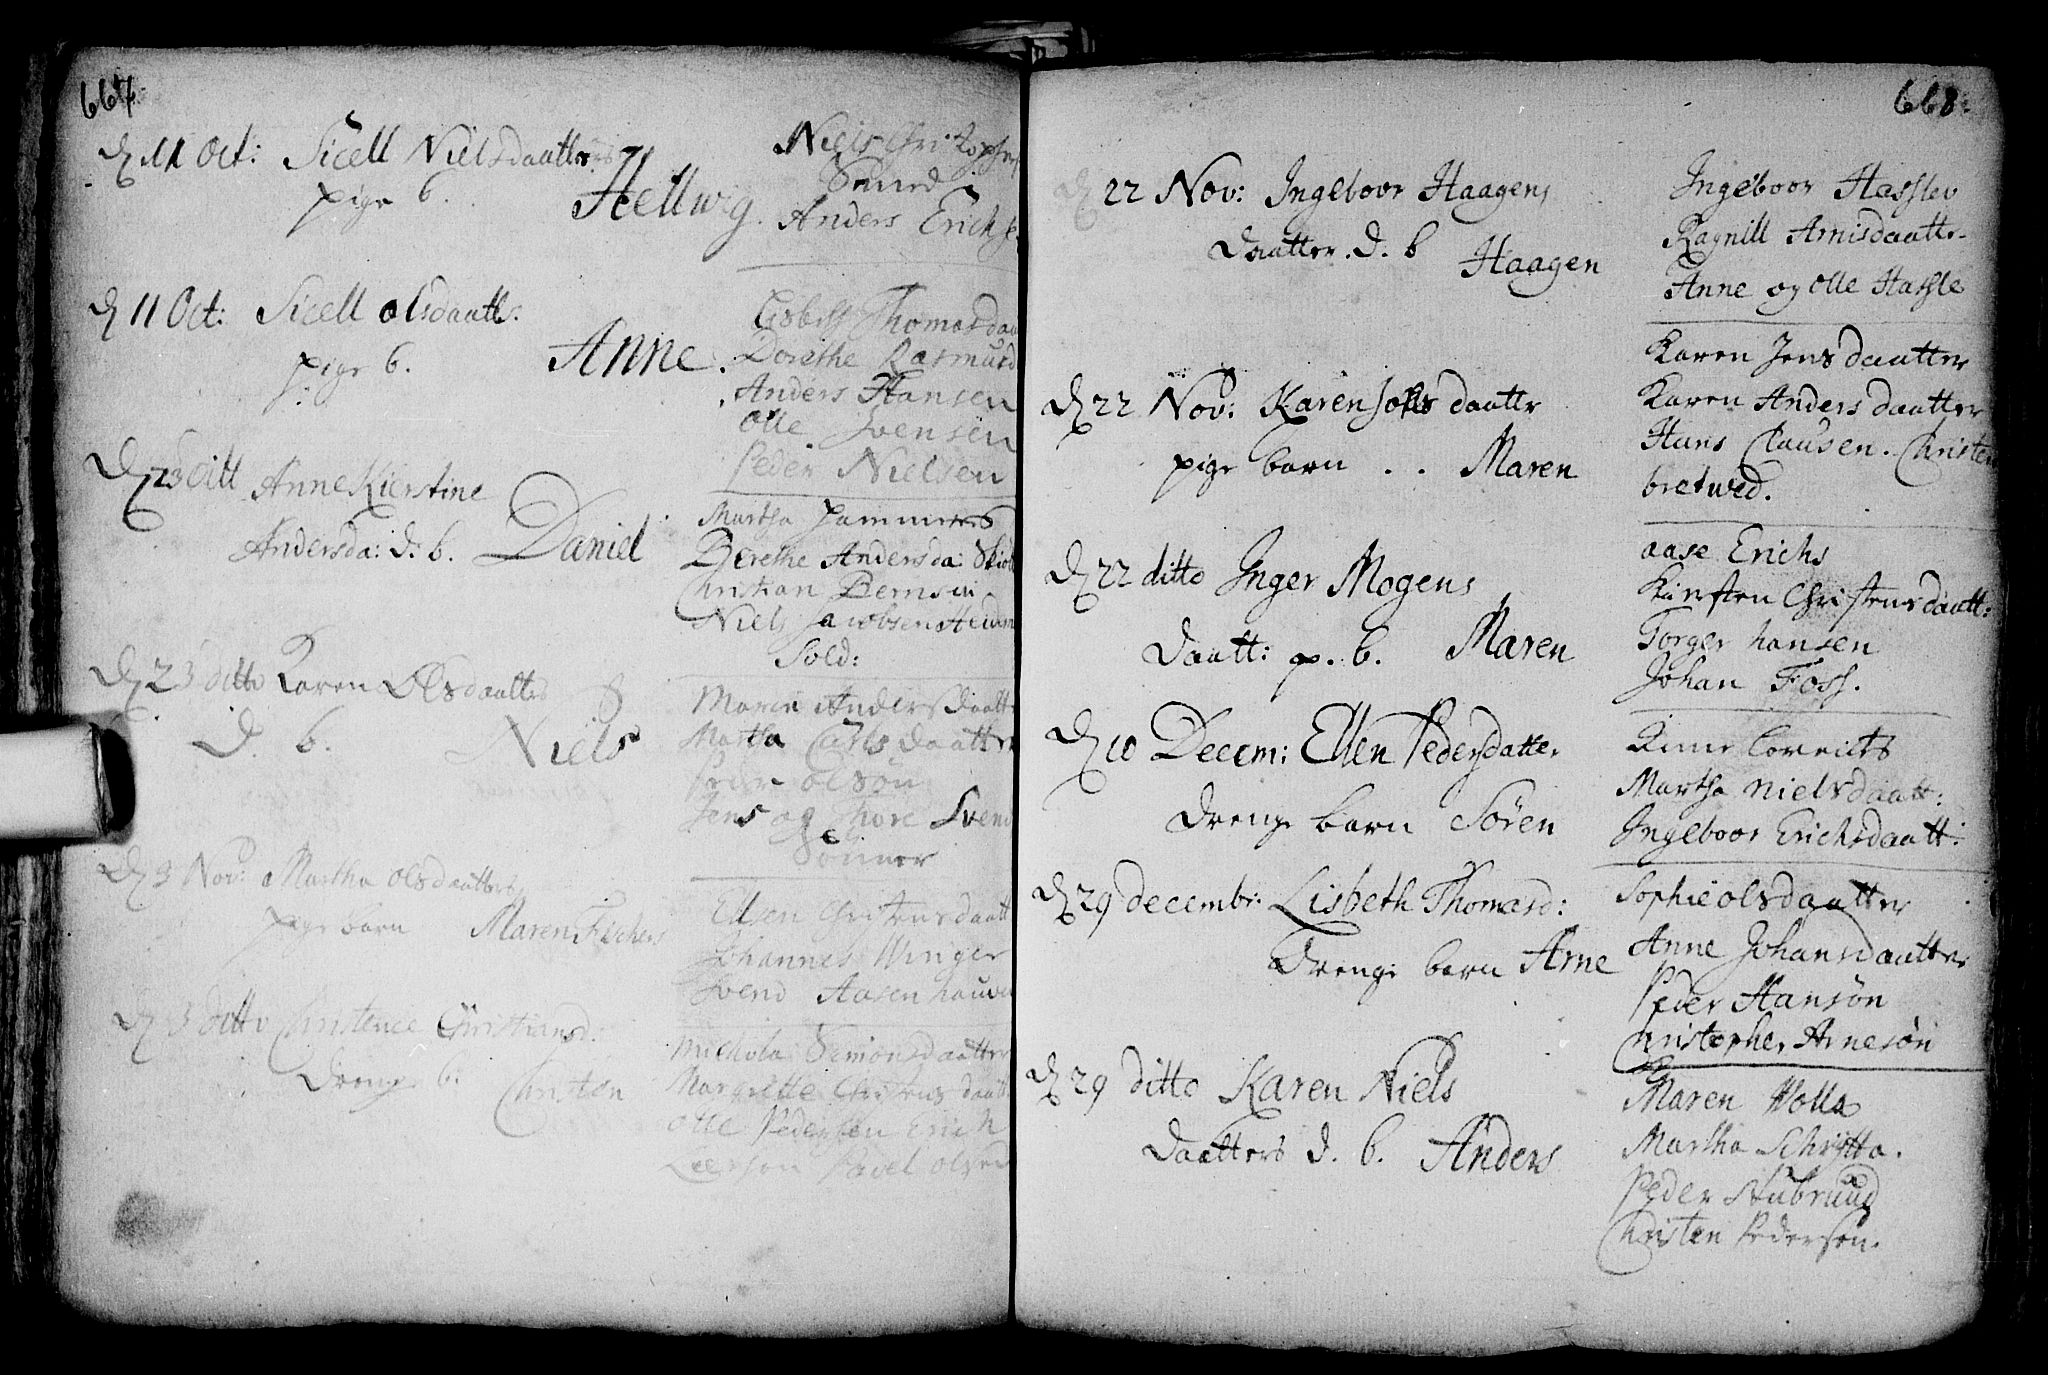 667.
D 11 Oct: Sicell Nielsdaatters
pige b. Hellwig.
Niels Christophers
Smed
Anders Erichse
D 11 Oct: Sicell olsdaatts.
pige b. Anne.
Lisbeth Thomasdaa
Dorethe Rasmusd
Anders Hansen
Olle Svensen
Peder Nielsen
D 23 ditt Anne Kierstine
Andersda: d. b. Daniel
Martha Hammers
Berethe Andersda:
Christian Bernsen
Niels Jacobsen
Sold:
D 23 ditto Karen Olsdaatters
d. b. Niels
Maren Andersdaatt
Martha Carlsdaatter
Peder olsøn
Jens og Thore Svend
Sønner
D 3 Nov: Martha olsdaatters
pige barn Maren
Ellsen Christensdaatt
Johannes Winger
Svend Aasen
D 3 ditto Christence Christiansd:
Drenge b. Christen
Simonsdaatter
Margrette Christensdaatt
Olle Pedersen Erich
Pavel
668.
D 22 Nov: Ingeboor Haagens
Daatter. d. b Haagen
Ingeboor Hasslev
Ragnill Arnisdaatte
Anne og Olle Hassle
D 22 Nov: Karen daatter
pige barn . . Maren
Karen Jensdaatter
Karen Andersdaatter
Hans Clausen. Christen
bretwed.
D 22 ditto Inger Mogens
Daatt: p. b. Maren
aase Erichs
Kirsten Christensdaatt:
Torger hansen
Johan Foss.
D 10 Decem: Ellen Pedersdatter
Drenge barn Sören
Martha Nielsdaatt:
Ingeboor Erichsdaatt:
D 29 decembr: Lisbeth Thomasd:
Drenge barn Arne
Sophie olsdaatter
Anne Johansdaatter
Peder Hansøn
Christopher Arnesøn
D 29 ditto Karen Niels
Daatters d. b. Anders
Maren Holla
Martha
Peder Nubruud
Christen Pedersen.